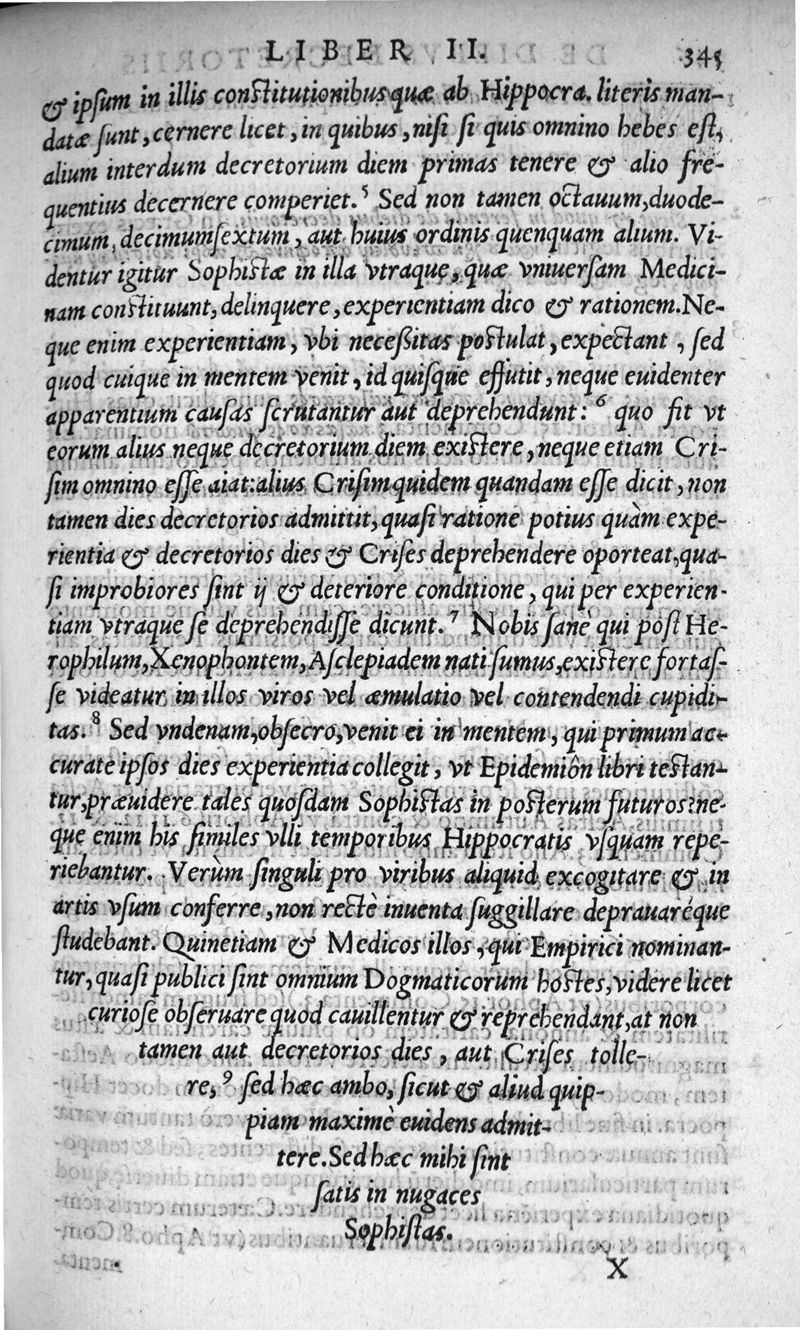 LIBER II. 345
& ipſum in illis conſtitutionibus quæ ab Hippocra. literis man-
datæ ſunt, cernere licet, in quibus, niſi ſi quis omnino hebes eſt,
alium interdum decretorium diem primas tenere & alio fre-
quentius decernere comperiet.⁵ Sed non tamen octauum, duode-
cimum, decimumſextum, aut huius ordinis quenquam alium. Vi-
dentur igitur Sophiſtæ in illa vtraque, quæ vniuerſam Medici-
nam conſtituunt, delinquere, experientiam dico & rationem. Ne-
que enim experientiam, vbi neceßitas poſtulat, expectant, ſed
quod cuique in mentem venit, id quiſque effutit, neque euidenter
apparentium cauſas ſcrutantur aut deprehendunt: ⁶ quo fit vt
eorum alius neque decretorium diem exiſtere, neque etiam Cri-
ſim omnino eſſe aiat: alius Criſim quidem quandam eſſe dicit, non
tamen dies decretorios admittit, quaſi ratione potius quàm expe-
rientia & decretorios dies & Criſes deprehendere oporteat, qua-
ſi improbiores ſint ij & deteriore conditione, qui per experien-
tiam vtraque ſe deprehendiſſe dicunt.⁷ Nobis ſanè qui poſt He-
rophilum, Xenophontem, Aſclepiadem nati ſumus, exiſtere fortaſ-
ſe videatur in illos viros vel æmulatio vel contendendi cupidi-
tas.⁸ Sed vndenam, obſecro, venit ei in mentem, qui primum ac-
curate ipſos dies experientia collegit, vt Epidemiôn libri teſtan-
tur, præuidere tales quoſdam Sophiſtas in poſterum futuros: ne-
que enim his ſimiles vlli temporibus Hippocratis vſquam repe-
riebantur. Verùm ſinguli pro viribus aliquid excogitare & in
artis vſum conferre, non rectè inuenta ſuggillare deprauaréque
ſtudebant. Quinetiam & Medicos illos, qui Empirici nominan-
tur, quaſi publici ſint omnium Dogmaticorum hoſtes, videre licet
curioſe obſeruare quod cauillentur & reprehendant, at non
tamen aut decretorios dies, aut Criſes tolle-
re,⁹ ſed hæc ambo, ſicut & aliud quip-
piam maximè euidens admit-
tere. Sed hæc mihi ſint
ſatis in nugaces
Sophiſtas.
X